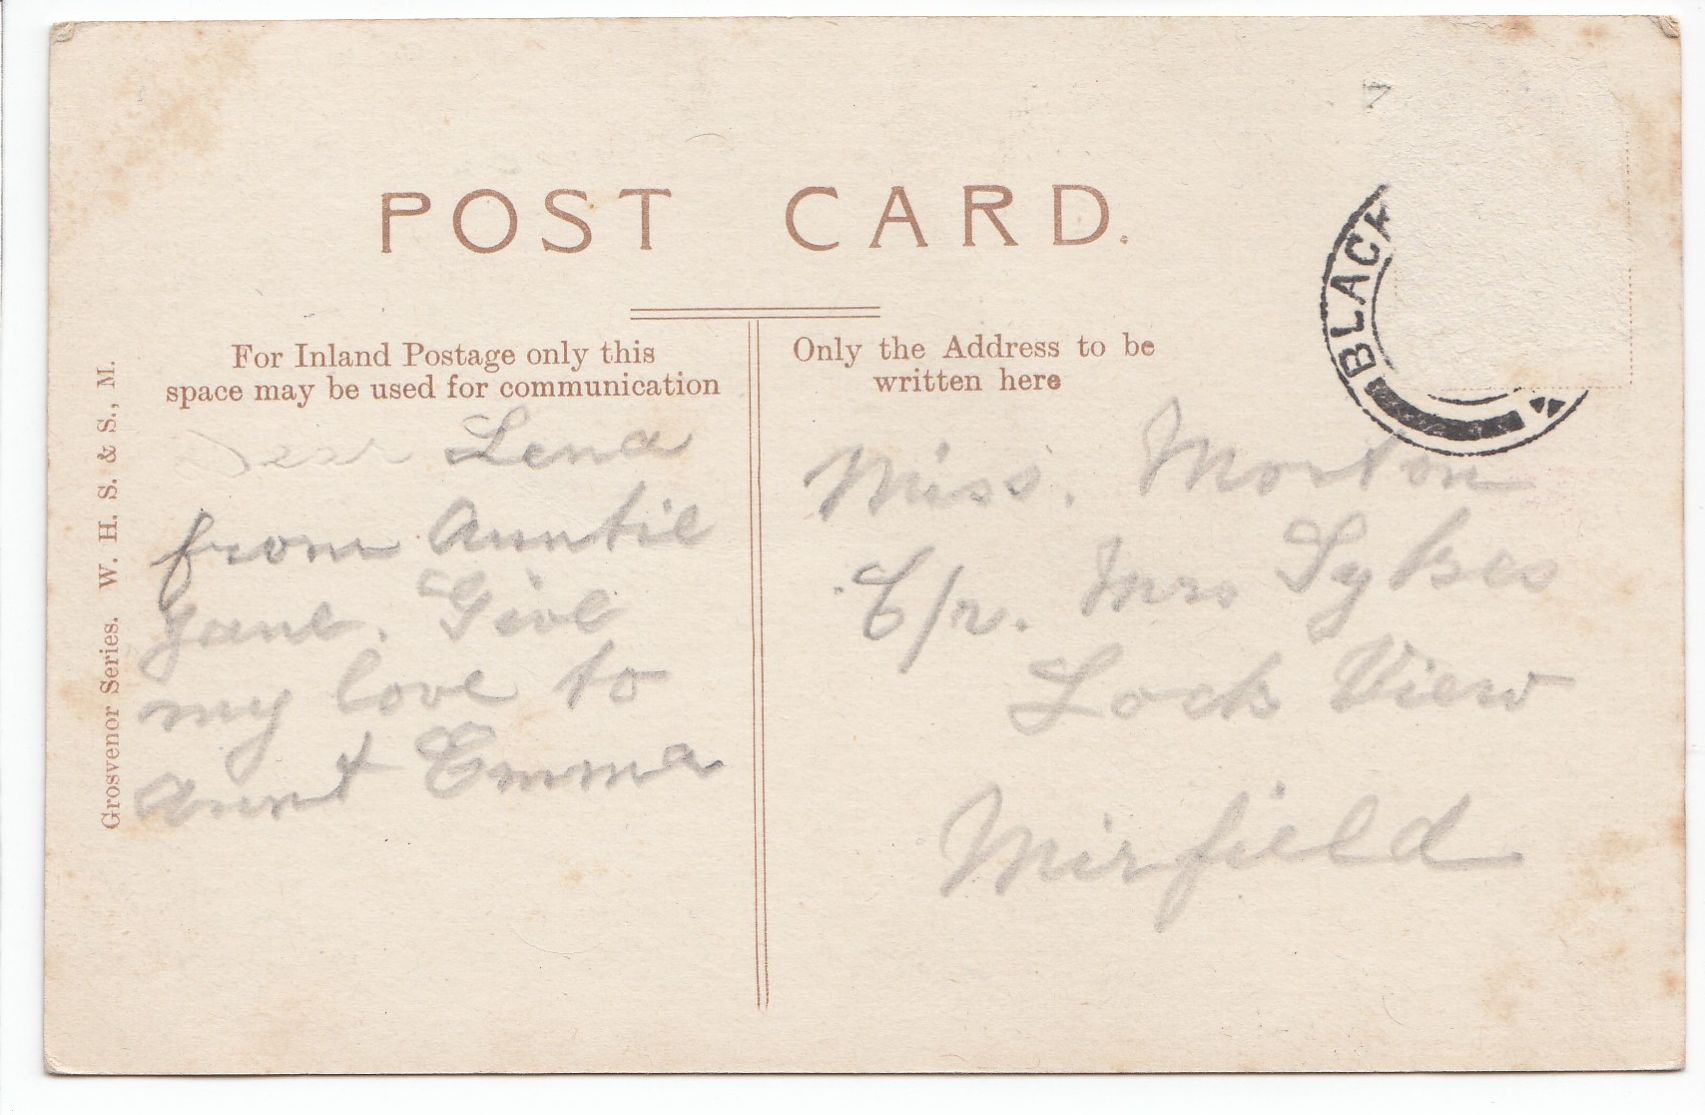 POST CARD.
For Inland Postage only this
space may be used for communication
Dear Lena
from Auntie
Jane. Give
my love to
Aunt Emma
Only the Address to be
written here
Miss. Morton
C/r. Mrs Sykes
Lock View
Mirfield
BLACK
Grosvenor Series. W. H. S. & S., M.